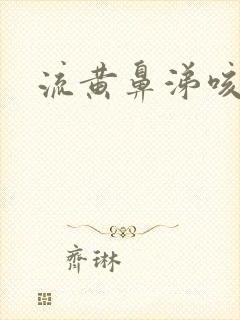 流黄鼻涕咳
齐琳